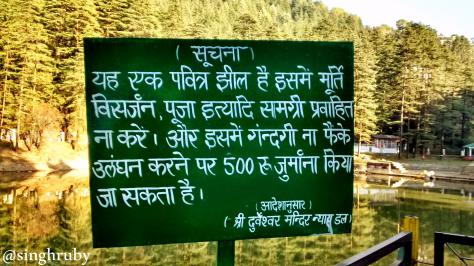 ( सूचना )
यह एक पवित्र झील है इसमें मूर्ति
विसर्जन, पूजा इत्यादि सामग्री प्रवाहित
ना करें। और इसमें गन्दगी ना फैंके
उलंघन करने पर 500 रु. जुर्माना किया
जा सकता है।
(आदेशानुसार)
( श्री दुर्वेश्वर मन्दिर न्यास डल )
@singhruby